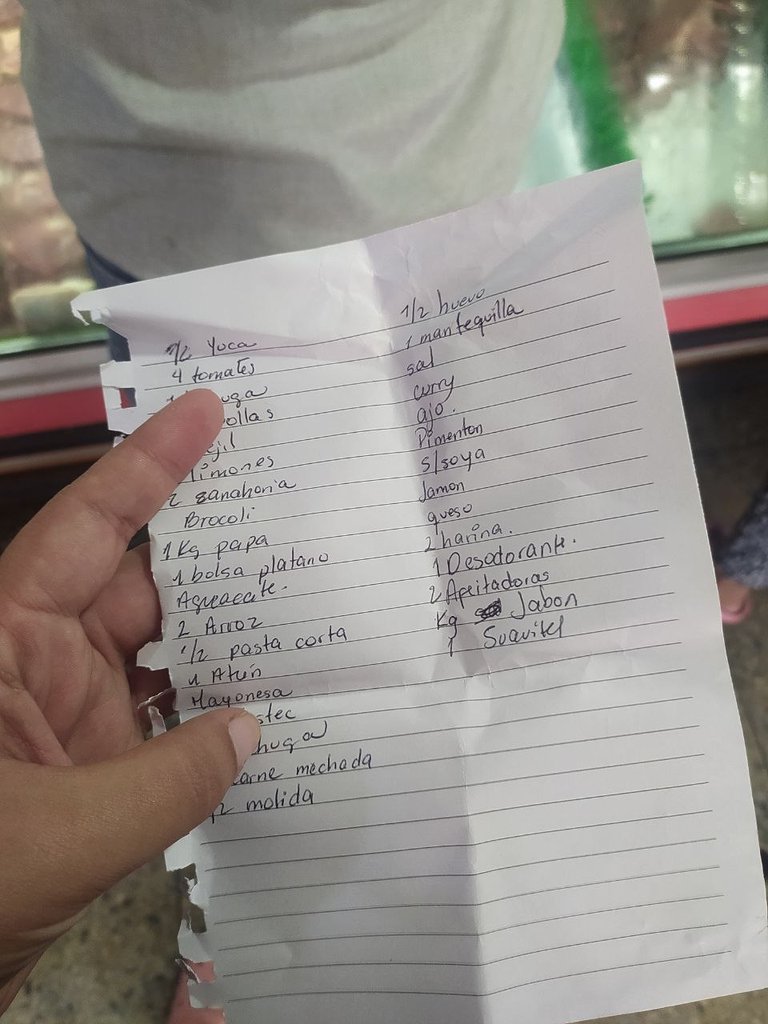 1/2 Yuca
4 tomates
limones
2 zanahoria
Brocoli
1 Kg papa
1 bolsa platano
Aguacate.
2 Arroz
1/2 pasta corta
4 Atún
Mayonesa
carne mechada
1/2 molida
1/2 huevo
1 mantequilla
sal
curry
ajo.
Pimenton
s/soya
Jamon
queso
2 harina.
1 Desodorante.
2 Afeitadoras
Kg Jabon
1 Suavitel